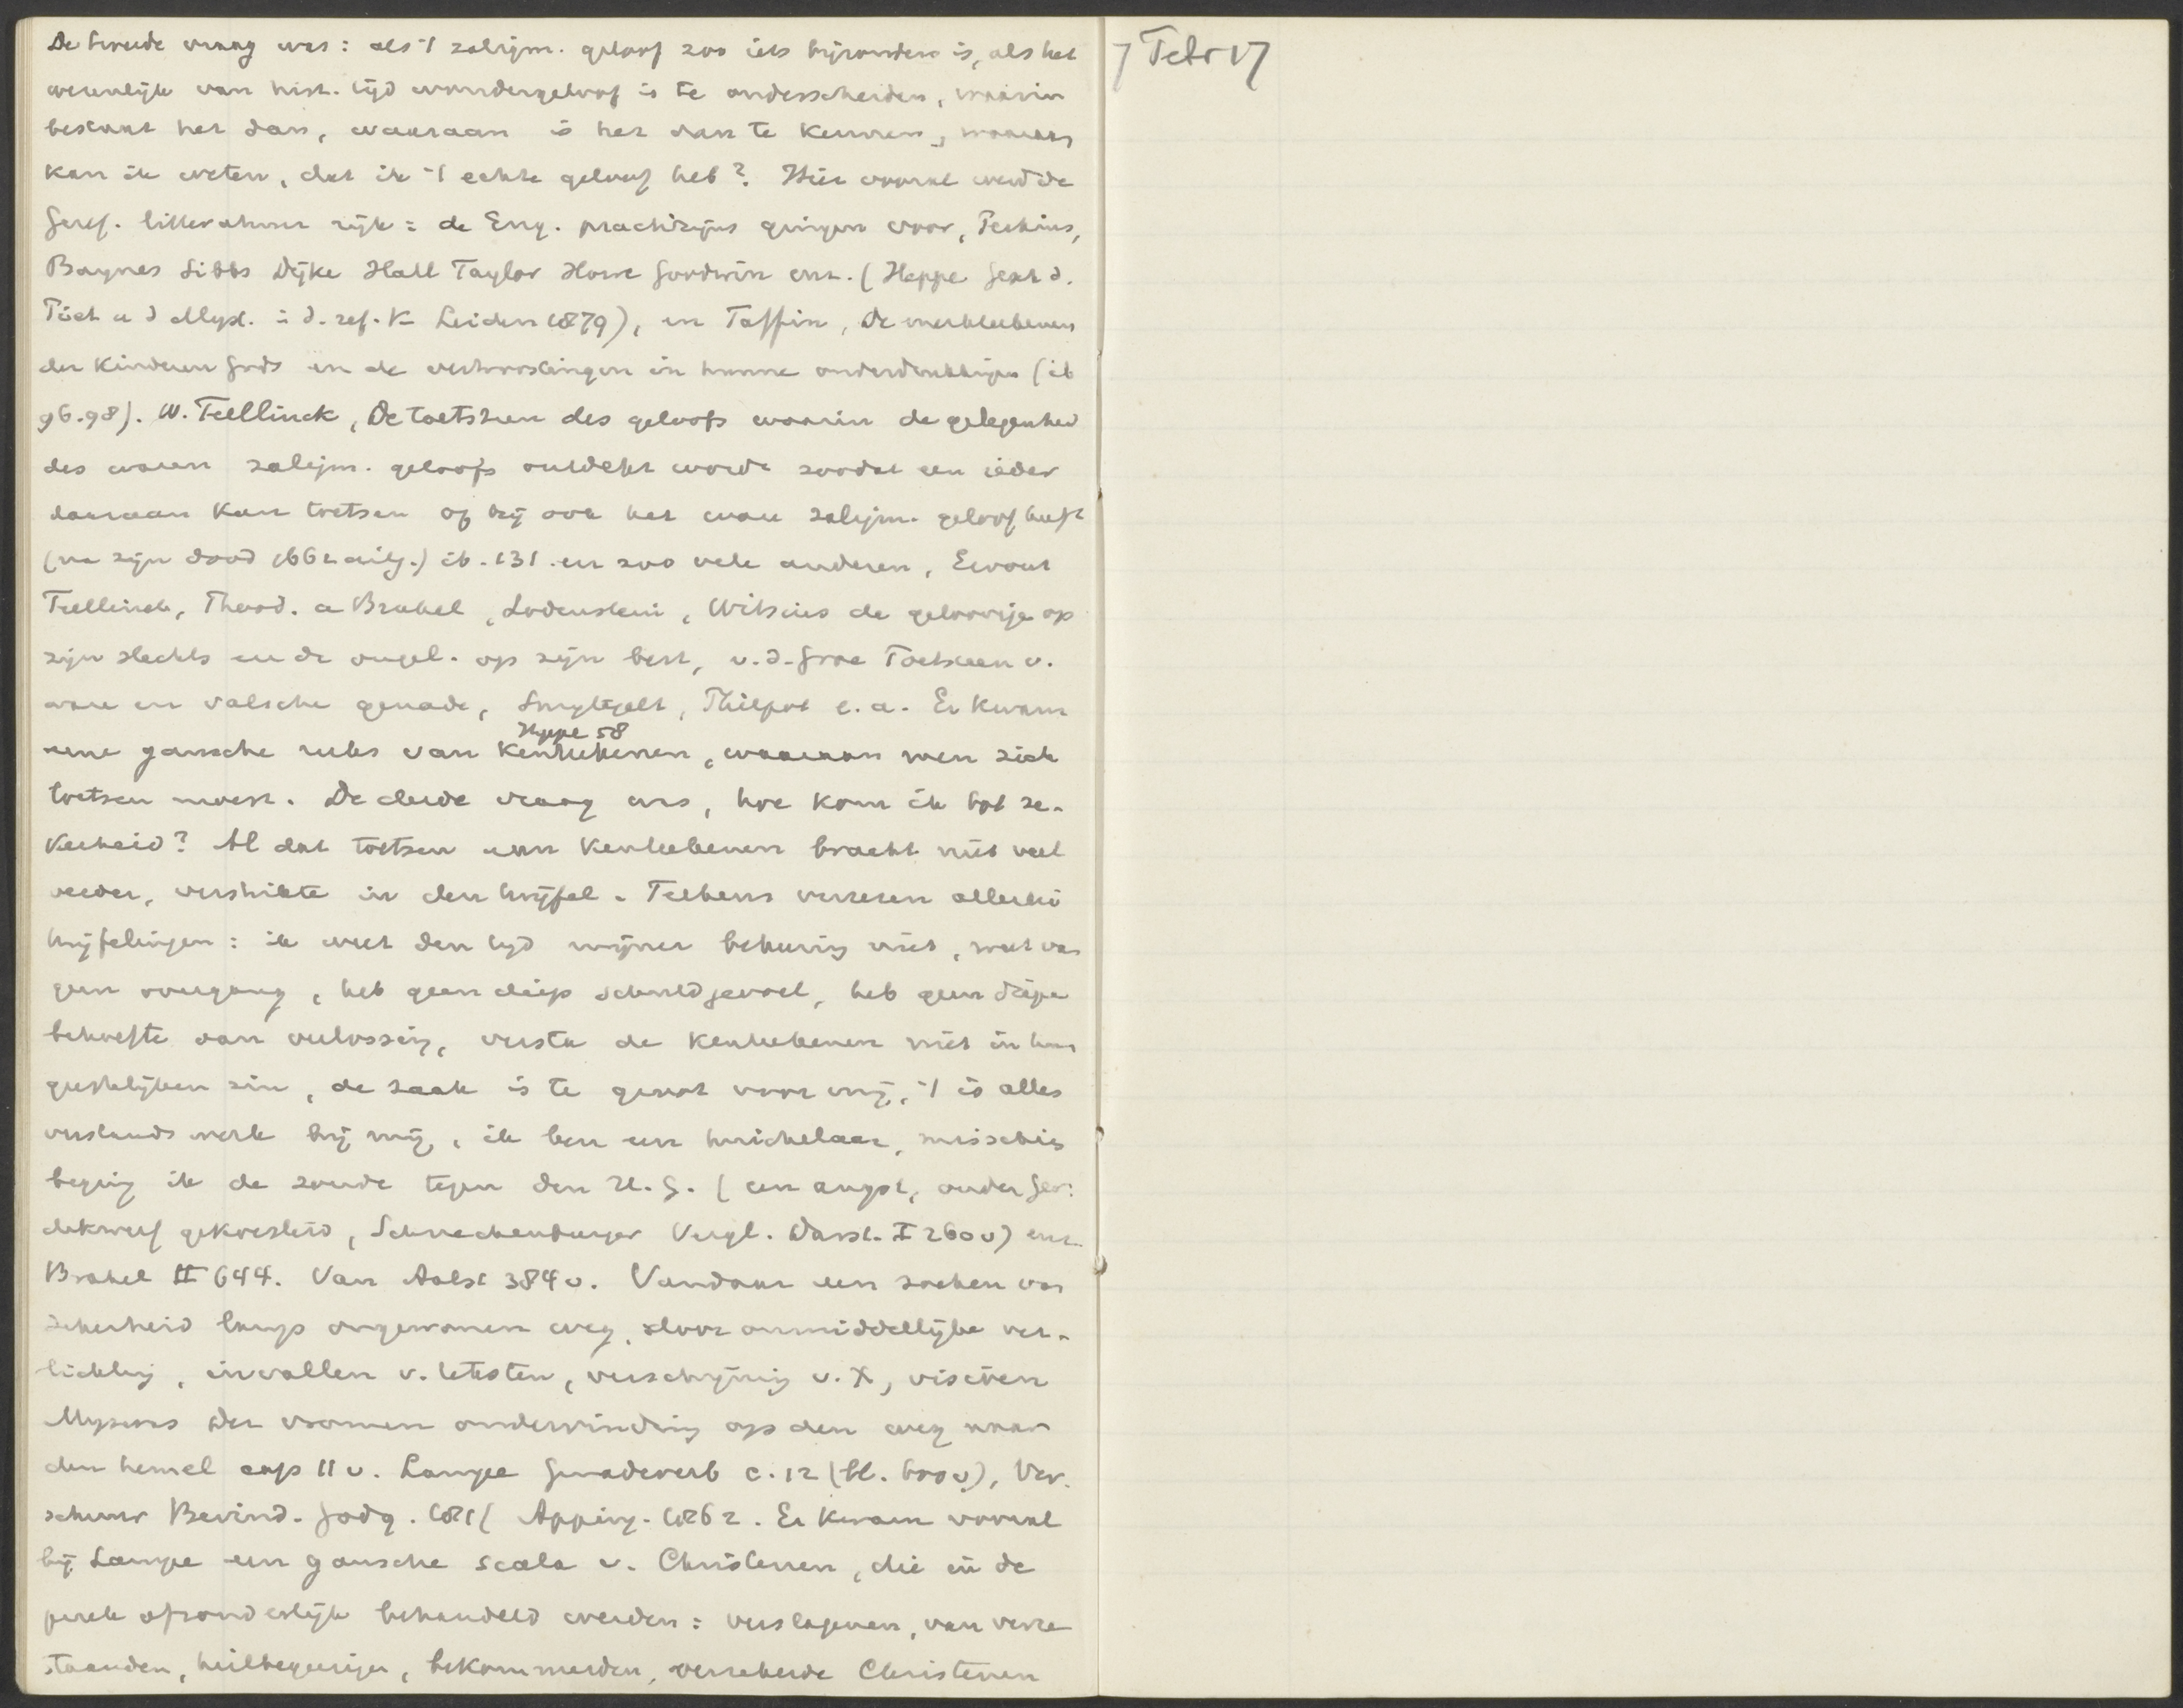 De tweede vraag was: als 't zaligm. geloof zoo iets bijzonders is, als het
wezenlijk van hist. tijd wondergeloof is te onderscheiden, waarin
bestaat het dan, waaraan is het dan te kennen, waaraan
kan ik weten, dat ik 't echte geloof heb? Hier vooral werd de
Geref. litteratuur rijk: de Eng. practizijns gingen voor, Perkins,
Baynes Sibbs Dijke Hall Taylor Howe Goodwin enz. (Heppe Gesch d.
Piet u d Myst. i d. ref. K Leiden 1879), en Taffin, De merkteekenen
der Kinderen Gods en de vertroostingen in hunne verdrukkingen (ib
96.98). W. Teellinck, De toetssteen des geloofs waarin de gelegenheid
des waren zaligm. geloofs ontdekt wordt zoodat een ieder
daaraan kan toetsen of hij ook het ware zaligm. geloof heeft
(na zijn dood 1662 uitg.) ib. 131. en zoo vele anderen, Ewout
Teellinck, Theod. a Brakel, Lodenstein, Witsius de geloovige op
zijn slechts en de ongel. op zijn best, v.d. Groe Toetssteen v.
ware en valsche genade, Smytegelt, Philpot e.a. Er kwam
Heppe 58
eene gansche reeks van kenteekenen, waaraan men zich
toetsen moest. De derde vraag was, hoe kom ik tot ze-
kerheid? Al dat toetsen aan kenteekenen bracht niet veel
verder, verstrikte in den twijfel. Telkens verrezen allerlei
twijfelingen: ik weet den tijd mijner bekeering niet, weet van
geen overgang, heb geen diep schuldgevoel, heb geen diepe
behoefte aan verlossing, versta de kenteekenen niet in hun
geestelijken zin, de zaak is te groot voor mij, 't is alles
verstands werk bij mij, ik ben een huichelaar, misschien
beging ik de zonde tegen den H.G. (een angst, onder Ger:
dikwerf gekoesterd, Schneckenburger Vergl. Darst. I 260 v) enz.
Brakel II 644. Van Aalst 384 v. Vandaar een zoeken van
zekerheid langs ongewonen weg, door onmiddellijke ver-
lichting, invallen v. teksten, verschijning v. X, visioenen
Myseras Der vromen ondervinding op den weg naar
den hemel cap 11 v. Lampe Genadeverb c. 12 (bl. 600 v), Ver-
schuur Bevind. Godg. 1881 Apping. 1862. Er kwam vooral
bij Lampe een gansche scala v. Christenen, die in de
preek afzonderlijk behandeld werden: verslagenen, van verre
staanden, heilbegeerigen, bekommerden, verzekerde Christenen
7 Febr 17